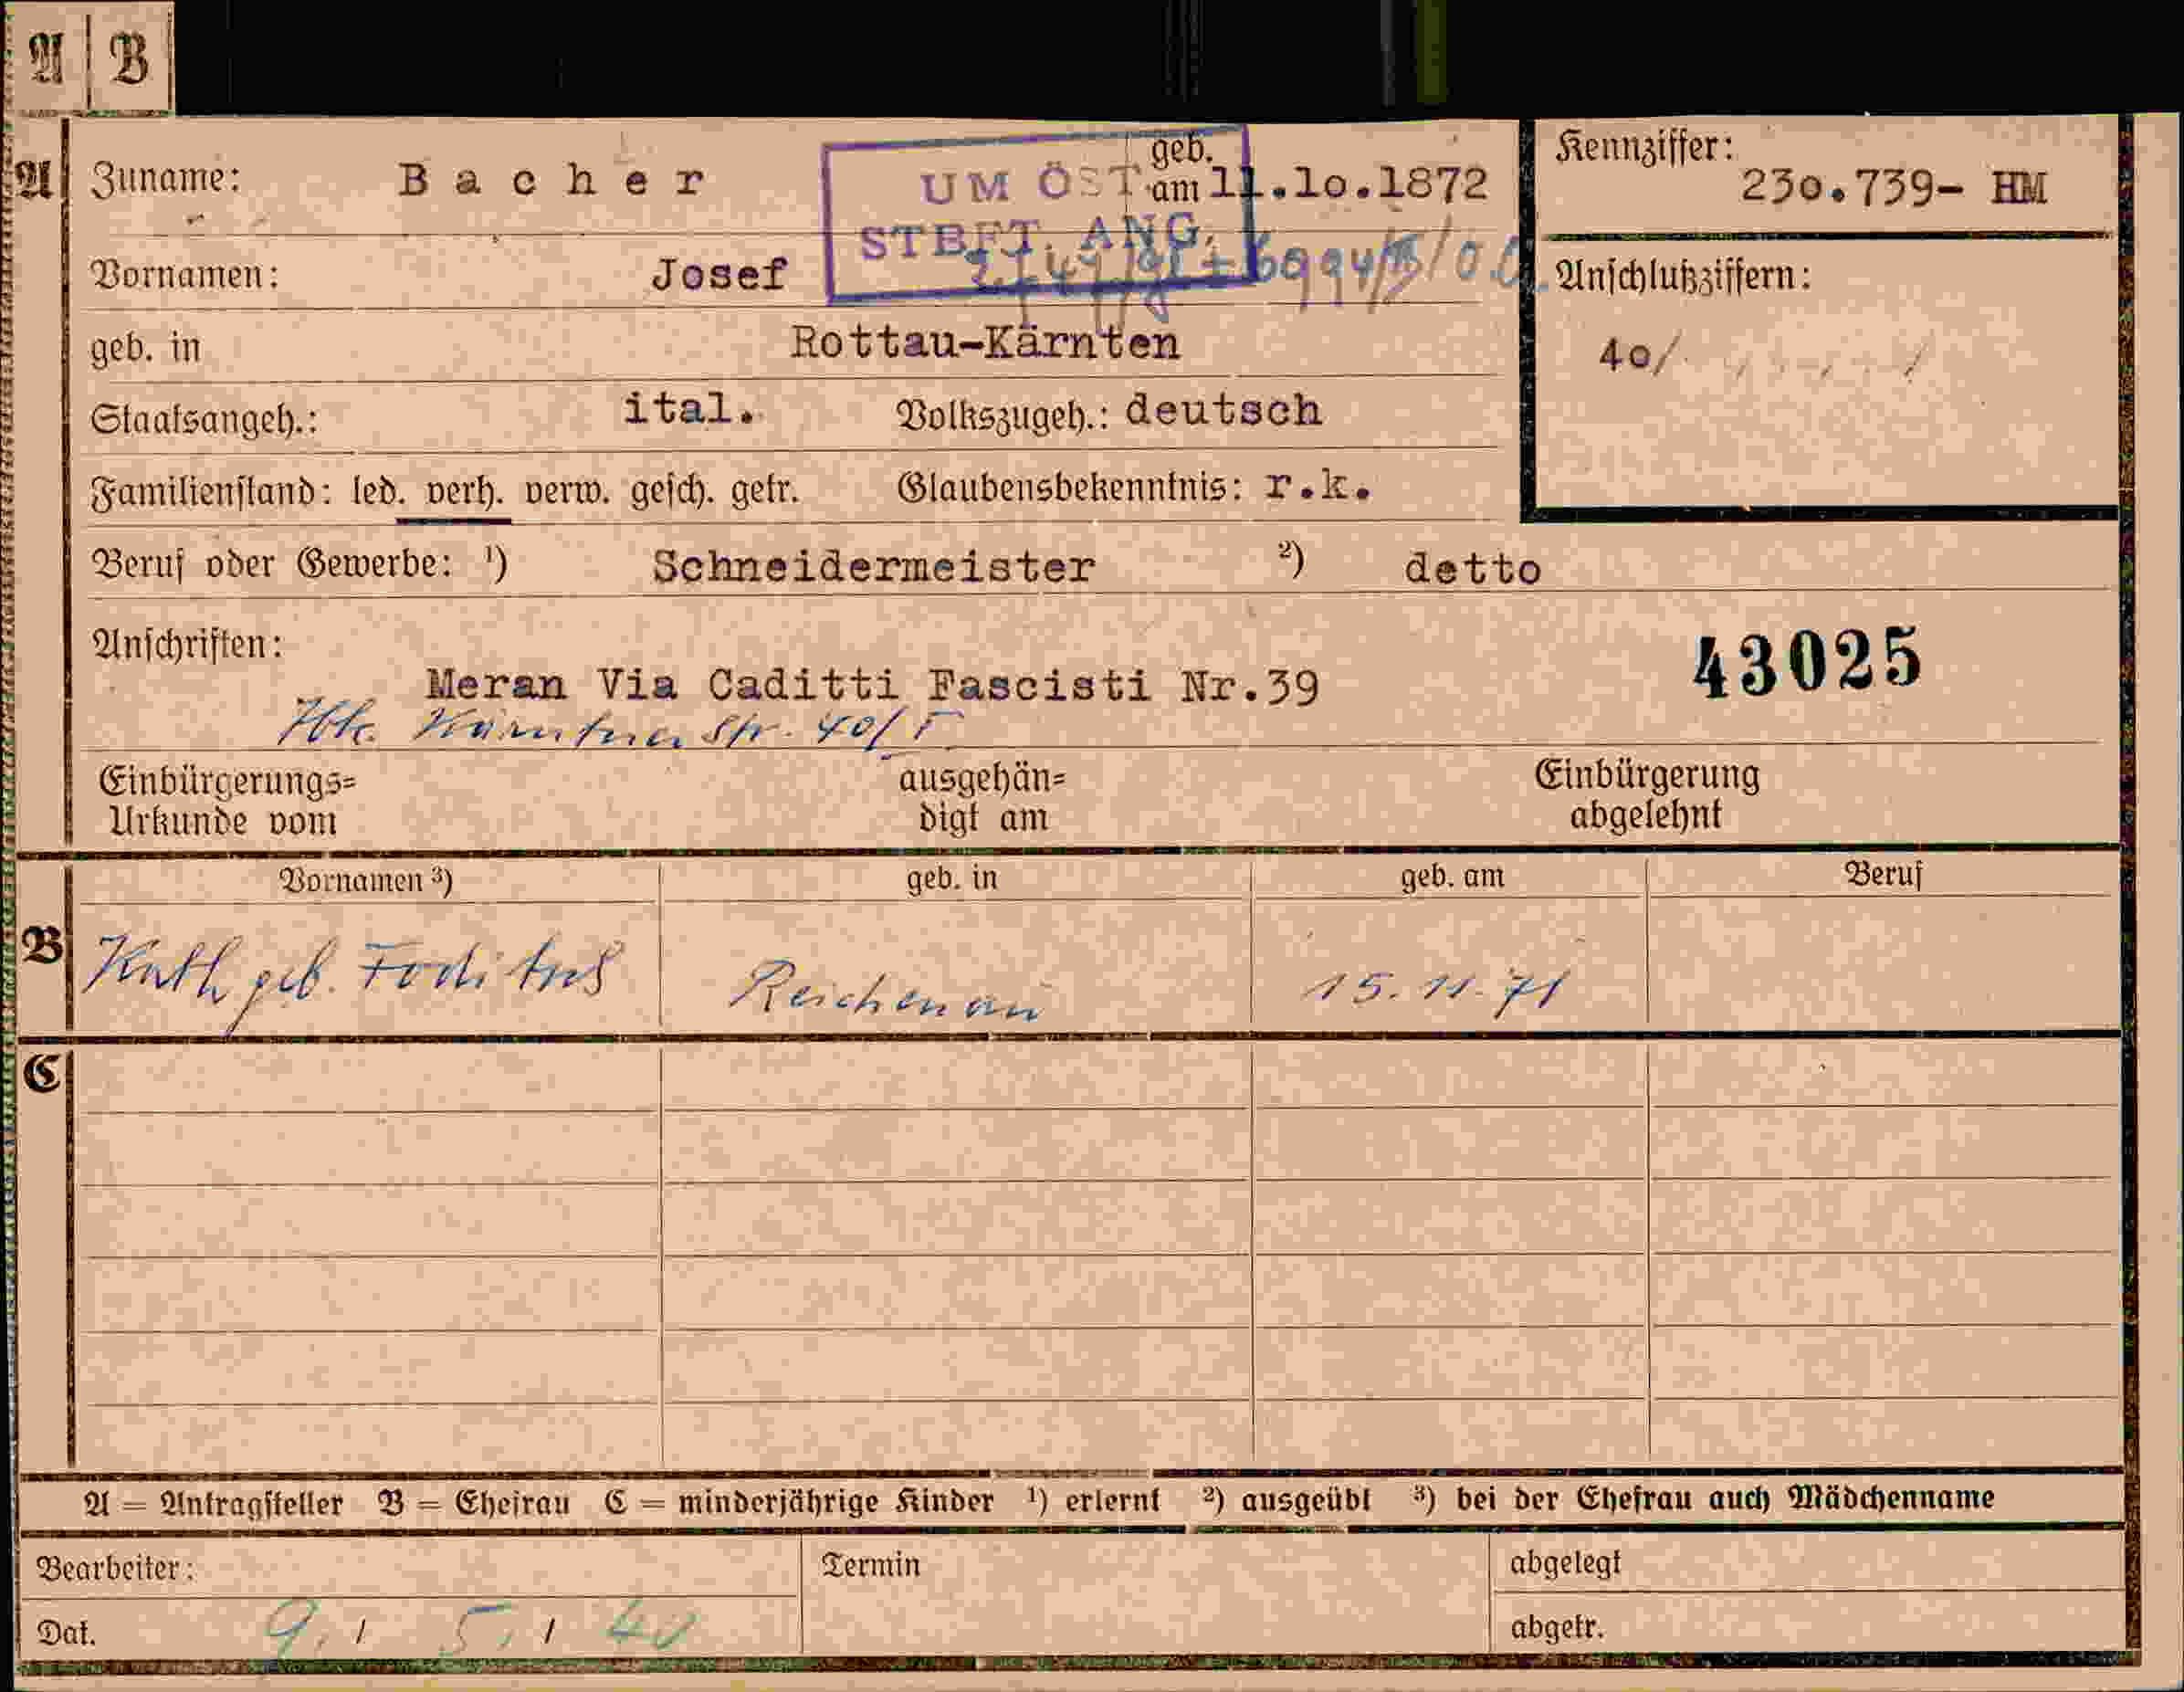 A B
A Zuname: Bacher geb. am 11.10.1872
UM ÖST.
STBFT. ANG.
Kennziffer: 230.739- HM
Vornamen: Josef
Anschlußziffern:
40/
geb. in Rottau-Kärnten
Staatsangeh.: ital. Volkszugeh.: deutsch
Familienstand: led. verh. verw. gesch. getr. Glaubensbekenntnis: r.k.
Beruf oder Gewerbe: ¹) Schneidermeister ²) detto
Anschriften:
43025
Meran Via Caditti Fascisti Nr.39
Str. 40/I
Einbürgerungs= ausgehän= Einbürgerung
Urkunde vom digt am abgelehnt
Vornamen ³) geb. in geb. am Beruf
B Kath geb. Reichenau 15.11.71
C
A = Antragsteller B = Ehefrau C = minderjährige Kinder ¹) erlernt ²) ausgeübt ³) bei der Ehefrau auch Mädchenname
Bearbeiter: Termin abgelegt
Dat. 9. / 5. / 40 abgetr.